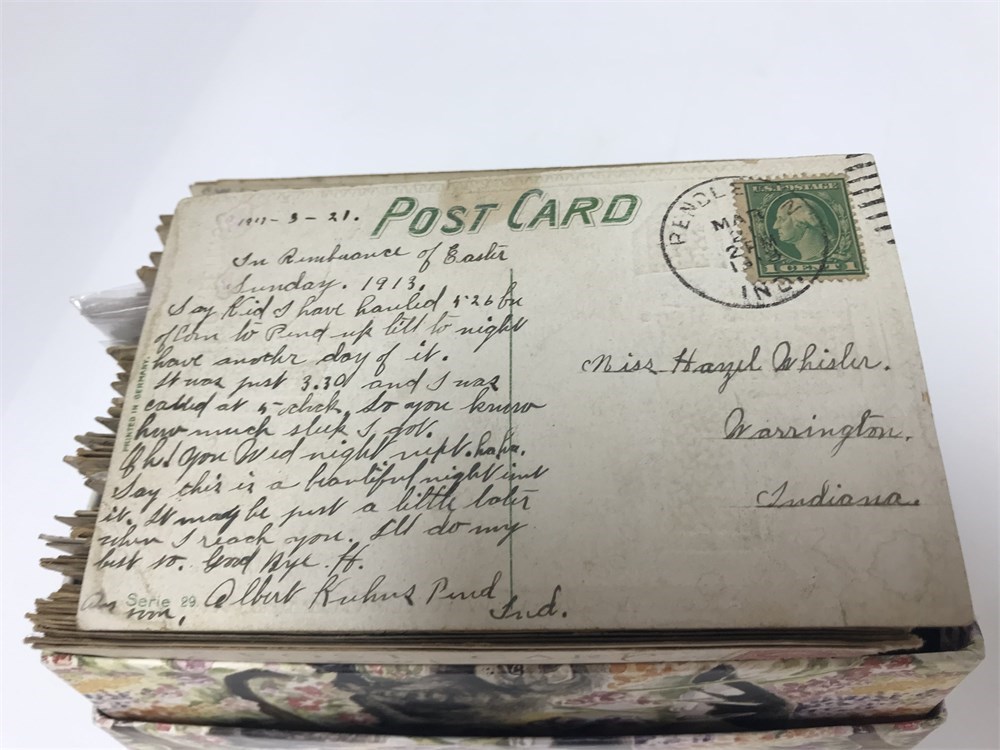 1913-3-21.
POST CARD
In Rembuance of Easter
Sunday. 1913.
Say Kid I have hauled 526 bu
of Corn to Pend up till to night
have another day of it.
It was just 3.30 and I was
called at 5 oclock. So you know
how much sleep I got.
Oh! You Wed night nept. haha.
Say this is a beautiful night isnt
it. It may be just a little later
when I reach you. I'll do my
best so. Good Bye. H.
Albert Kuhns Pend
Ind.
Serie 29.
PRINTED IN GERMANY.
PENDLE
MAR
IND.
U.S. POSTAGE
1 CENT 1
Miss Hazel Whisler.
Warrington.
Indiana.